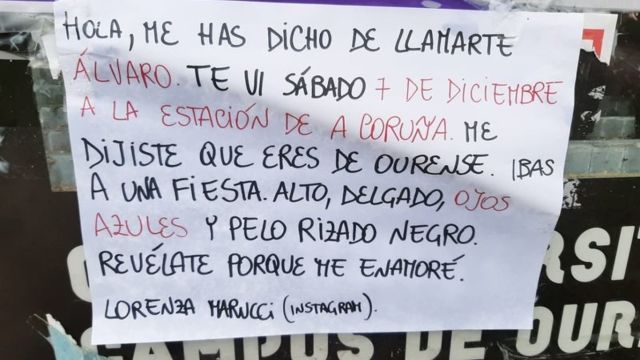 HOLA, ME HAS DICHO DE LLAMARTE
ÁLVARO. TE VI SÁBADO 7 DE DICIEMBRE
A LA ESTACIÓN DE A CORUÑA. ME
DIJISTE QUE ERES DE OURENSE. IBAS
A UNA FIESTA. ALTO, DELGADO, OJOS
AZULES Y PELO RIZADO NEGRO.
REVÉLATE PORQUE ME ENAMORÉ.
LORENZA MARUCCI (INSTAGRAM).
RSI
CAMPUS DE OUR